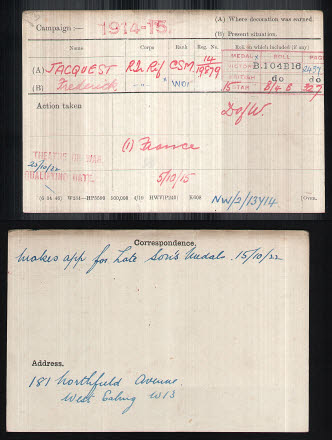 Campaign :— 1914-15.
(A) Where decoration was earned
(B) Present situation.
Name Corps Rank Reg. No. Roll on which included (if any)
MEDAL ROLL PAGE
(A) JACQUEST R.Ir.Rif CSM 14/19879 VICTORY B.104B18 2457
(B) Frederick " x WOII BRITISH do do
15 STAR B/4 B 327
Action taken D of W.
(1) France
THEATRE OF WAR.
QUALIFYING DATE.
5/10/15
(6 34 46) W234—HP5590 500,000 4/19 HWV(P240) K608
NW/2/13714
[OVER.
Correspondence.
Makes app for Late Son's Medals. 15/10/22
Address.
181 Northfield Avenue
West Ealing W13